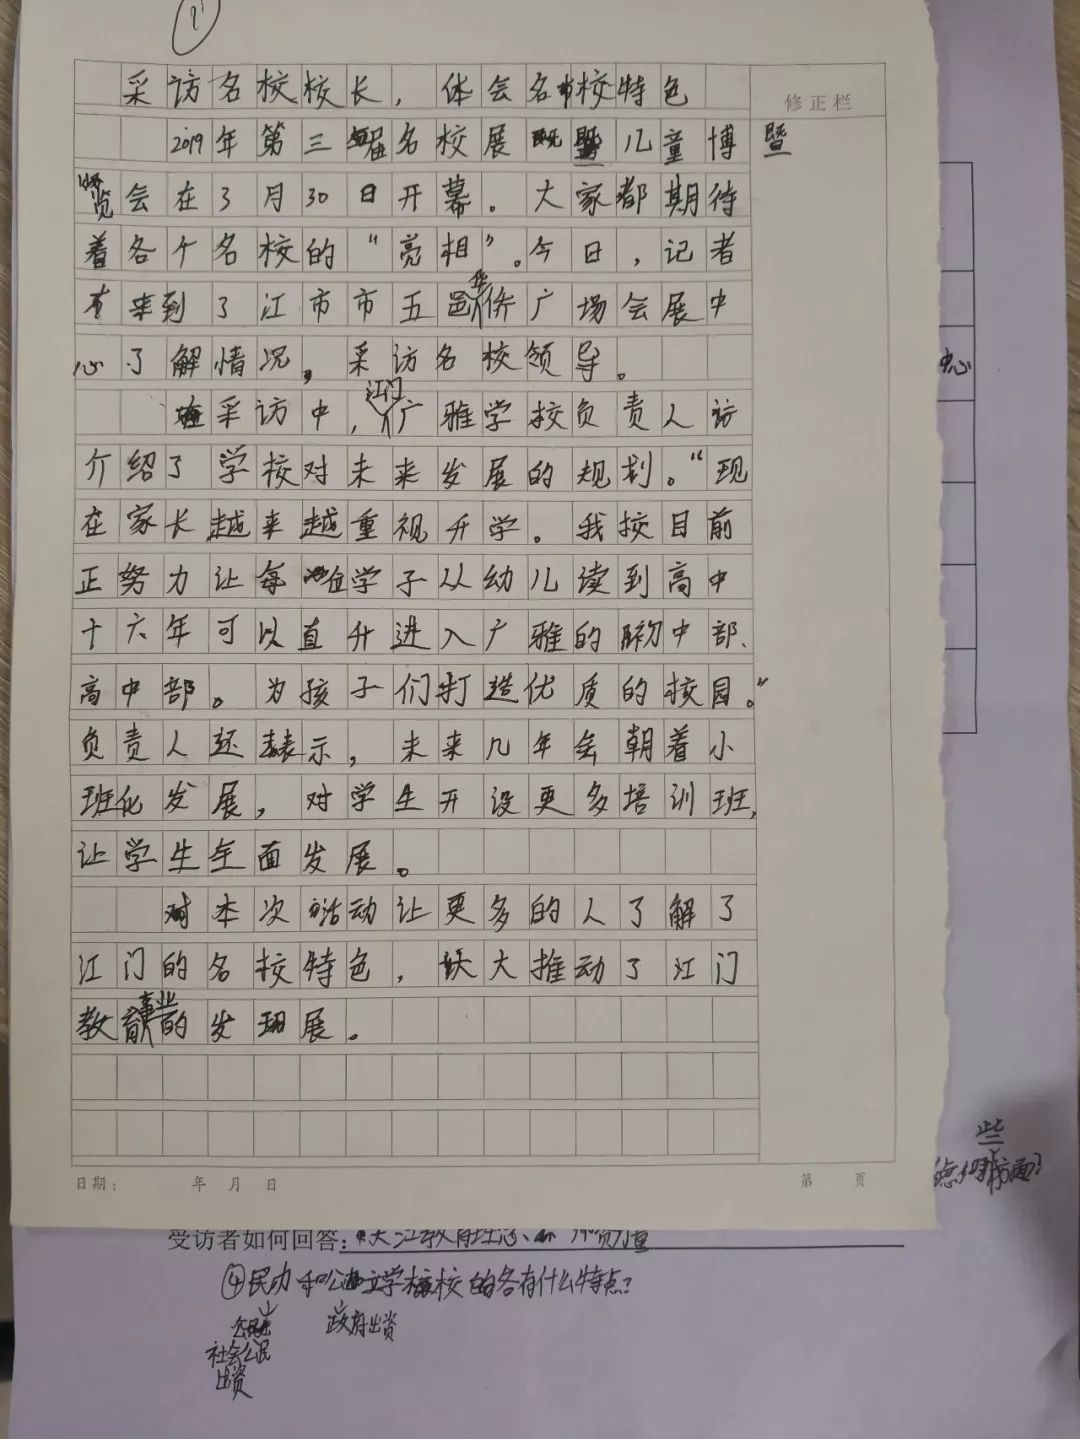 1
采访名校校长，体会名校特色
修正栏
2019年第三届名校展暨儿童博
暨
览会在3月30日开幕。大家都期待
着各个名校的“亮相”。今日，记者
来到了江市市五邑华侨广场会展中
心了解情况，采访名校领导。
采访中，江门广雅学校负责人
介绍了学校对未来发展的规划。“现
在家长越来越重视升学。我校目前
正努力让每位学子从幼儿读到高中
十六年可以直升进入广雅的初中部、
高中部。为孩子们打造优质的校园。”
负责人还表示，未来几年会朝着小
班化发展，对学生开设更多培训班，
让学生全面发展。
本次活动让更多的人了解了
江门的名校特色，大推动了江门
教育事业的发展。
日期： 年 月 日
第 页
中心
些
方面？
受访者如何回答：
④民办和公立学校的各有什么特点？
政府出资
社会公民
出资